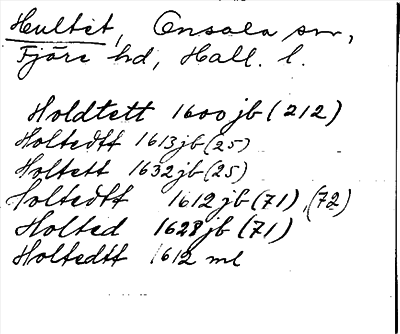 Hultet, Onsala sn,
Fjäre hd, Hall. l.
Holdtett 1600 jb (212)
Holtedtt 1613 jb (25)
Holtett 1632 jb (25)
Holtedtt 1612 jb (71), (72)
Holted 1628 jb (71)
Holtedtt 1612 ml